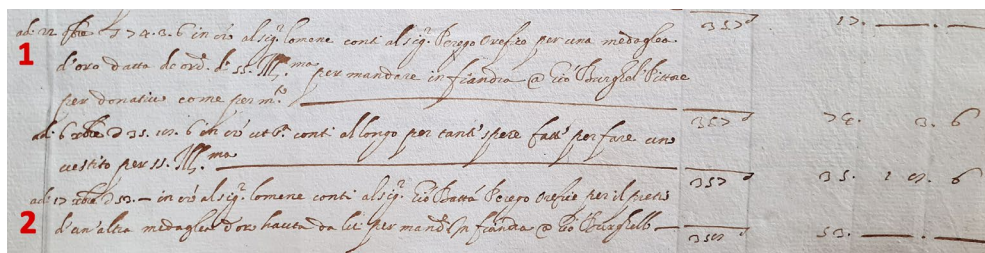 357 17. — . —
1 adi 22 9bre 74. 3. 6 in cro al sigr. Comene conti al sigr. Perego Orefice per una medaglia
d'oro datta de ord. di SS. Illma per mandare in fiandra @ Gio Burghel Pittore
per donativo come per mto 357 74. 3. 6
adi 6 xbre 35. 6 in cro conti al longo per tante spese fatte per fare un
vestito per SS. Illma 357 35. 6
adi 17 xbre 53. — in cro al sigr. Comene conti al sigr. Gio Batta Perego Orefice per il pretio
2 d'un'altra medaglia d'oro hauta da lui per mandar in fiandra @ Gio Burghell — 53. — . —